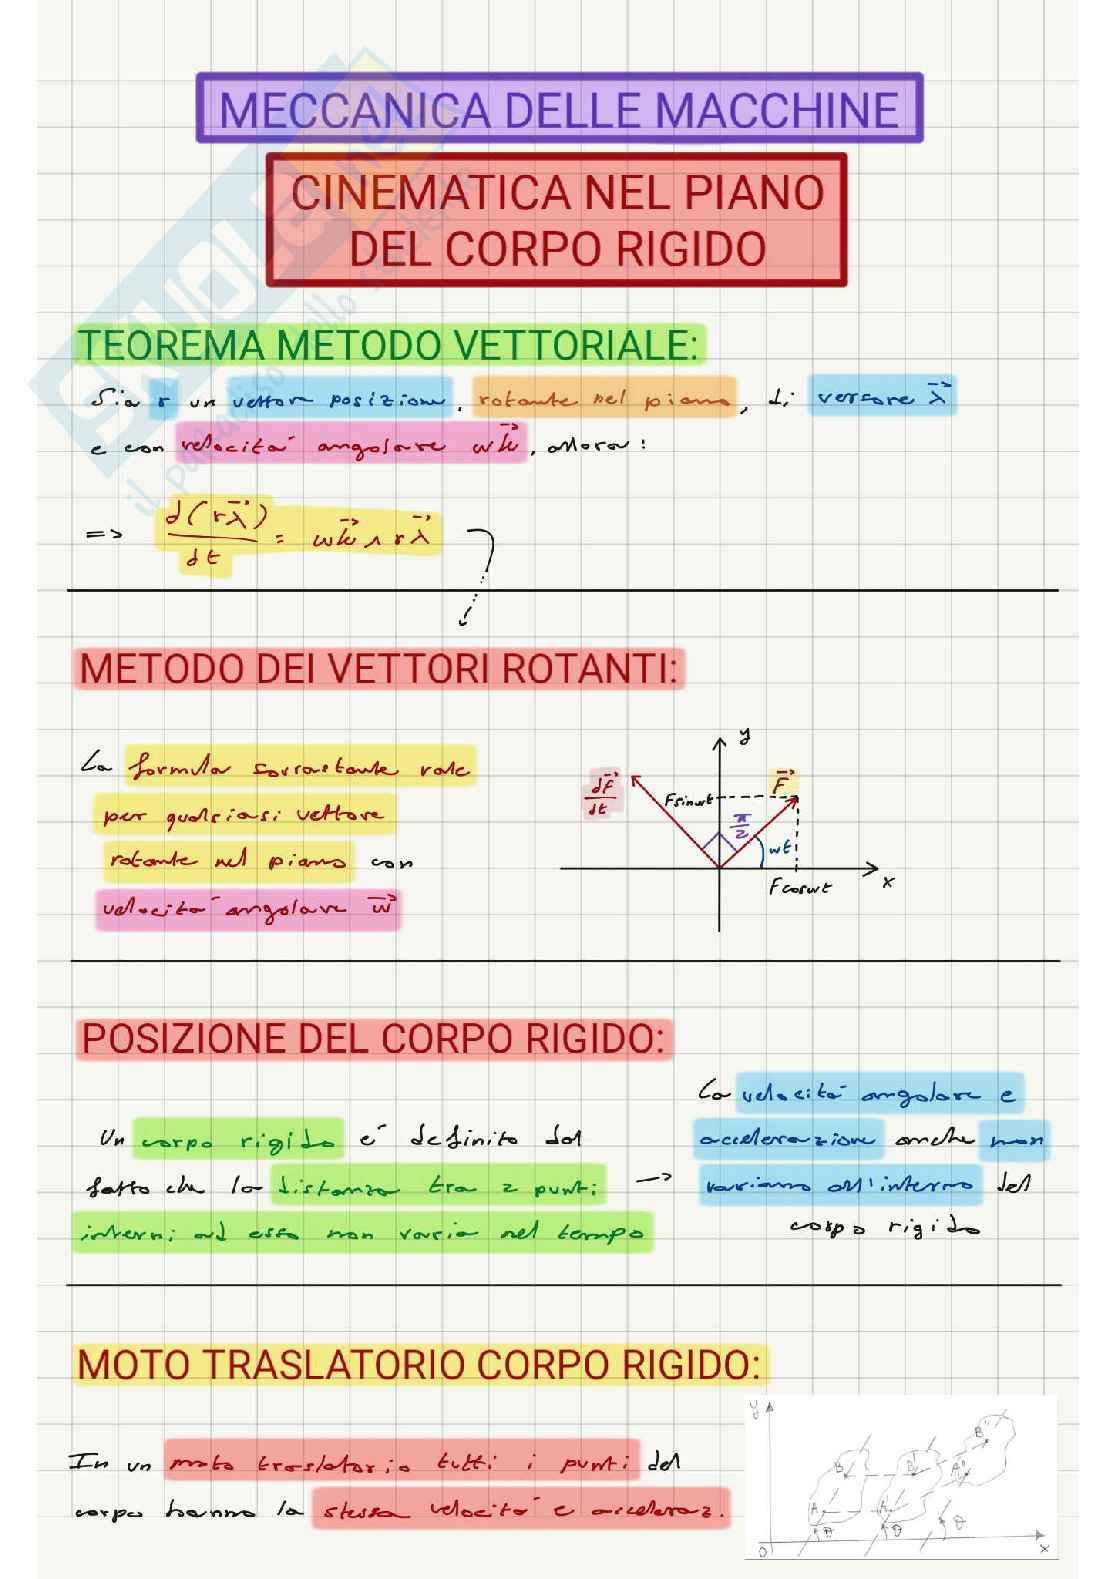 MECCANICA DELLE MACCHINE
CINEMATICA NEL PIANO
DEL CORPO RIGIDO
SKUOLA.net
TEOREMA METODO VETTORIALE:
Sia r un vettore posizione, rotante nel piano, di versore λ⃗
e con velocità angolare wk⃗, allora:
=> d(rλ⃗)/dt = wk⃗ ∧ rλ⃗
METODO DEI VETTORI ROTANTI:
La formula sovrastante vale
per qualsiasi vettore
rotante nel piano con
velocità angolare w⃗
y
dF⃗/dt
Fsinwt
F⃗
π/2
wt
Fcoswt
x
POSIZIONE DEL CORPO RIGIDO:
Un corpo rigido é definito dal
fatto che la distanza tra 2 punti
interni ad esso non varia nel tempo
->
La velocità angolare e
accelerazione anche non
variano all'interno del
corpo rigido
MOTO TRASLATORIO CORPO RIGIDO:
In un moto traslatorio tutti i punti del
corpo hanno la stessa velocità e acceleraz.
y
B B' B''
A A' A''
θ θ θ
O x